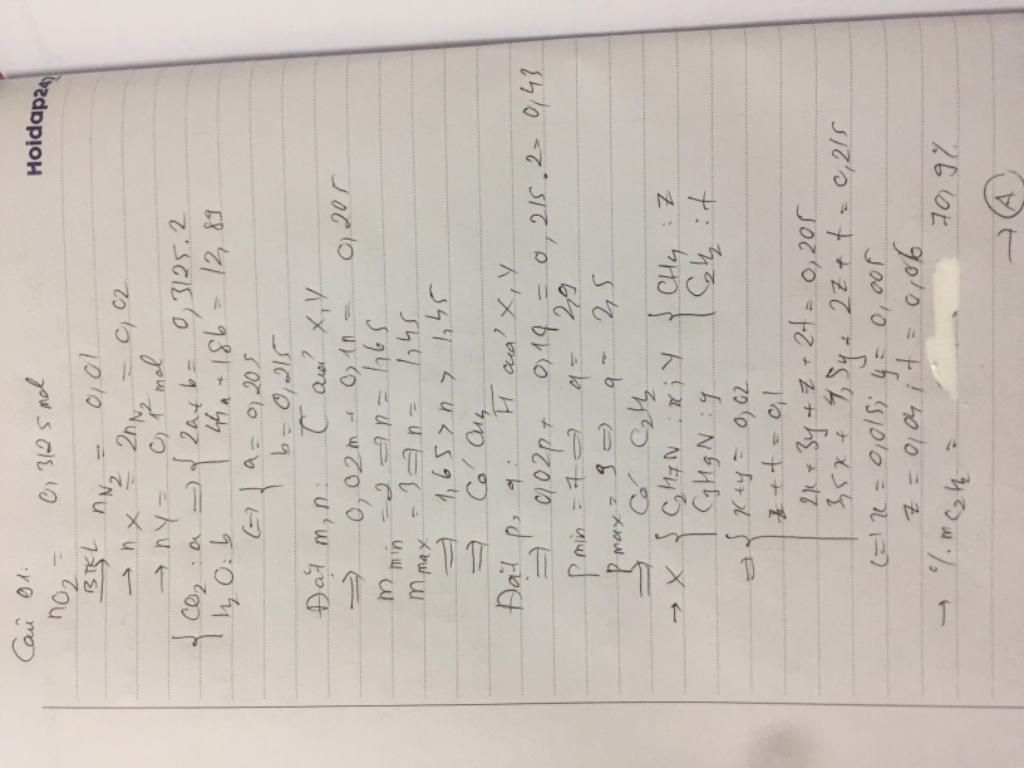 Hoidap247
Câu 01:
nO2 = 0,3125 mol
BTKL
→ nN2 = 0,01
→ nX = 2nN2 = 0,02
→ nY = 0,1 mol
{ CO2 : a ⇒ { 2a + b = 0,3125.2
H2O : b 44a + 18b = 12,89
(=) { a = 0,205
b = 0,215
Đặt m, n : C̅ của X, Y
⇒ 0,02m + 0,1n = 0,205
m min = 2 ⇒ n = 1,65
m max = 3 ⇒ n = 1,45
⇒ 1,65 > n > 1,45
⇒ Có CH4
Đặt p, q : H̅ của X, Y
⇒ 0,02p + 0,1q = 0,215.2 = 0,43
{ p min = 7 ⇒ q = 2,9
p max = 9 ⇒ q = 2,5
⇒ Có C2H2
→ X { C2H7N : x ; Y { CH4 : z
C3H9N : y C2H2 : t
⇒ { x + y = 0,02
z + t = 0,1
2x + 3y + z + 2t = 0,205
3,5x + 4,5y + 2z + t = 0,215
(=) x = 0,015 ; y = 0,005
z = 0,04 ; t = 0,06
→ % m C2H2 = 70,9%
→ A